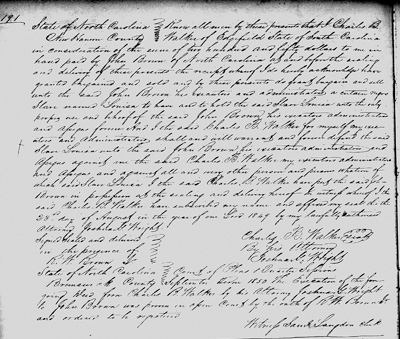 191
State of North Carolina } Know all men by these presents that I Charles B
New Hanover County } Walker of State of South Carolina
in consideration of the sum of two hundred and fifty dollars to me in
hand paid by John Brown of North Carolina at and before the sealing
and delivery of these presents the receipt whereof I do hereby acknowledge have
granted bargained and sold and by these presents do grant bargain and sell
unto the said John Brown his executors and administrators a certain negro
Slave named Louisa to have and to hold the said Slave Louisa unto the only
proper use and behoof of the said John Brown his executors administrators
and assigns forever And I the said Charles B. Walker for myself my execu
tors and Administrators shall and will warrant and forever defend the said
Slave Louisa unto the said John Brown his executors administrators and
assigns against me the said Charles B. Walker my executors administrators
and assigns and against all and every other person and persons whatsoever
said Slave Louisa I the said Charles B. Walker have put the said
Brown in possession at the sealing and delivery hereof In witness whereof I the
said Charles B. Walker have hereunto my name and affixed my seal this the
28th day of August in the year of our Lord 1849 by my lawfully authorised
Attorney Joshua G. Wright
Signed sealed and delivered } Charles B. Walker (seal)
in the presence of } By his Attorney
R. W. Brown } Joshua G. Wright
State of North Carolina } Court of Pleas & Quarter Sessions
Brunswick County } September Term 1850 The Execution of the fore
going Deed from Charles B. Walker by his Attorney Joshua G. Wright
to John Brown was proven in open Court by the oath of R. W. Brown
and ordered to be registered
Witness Saml Langdon Clk